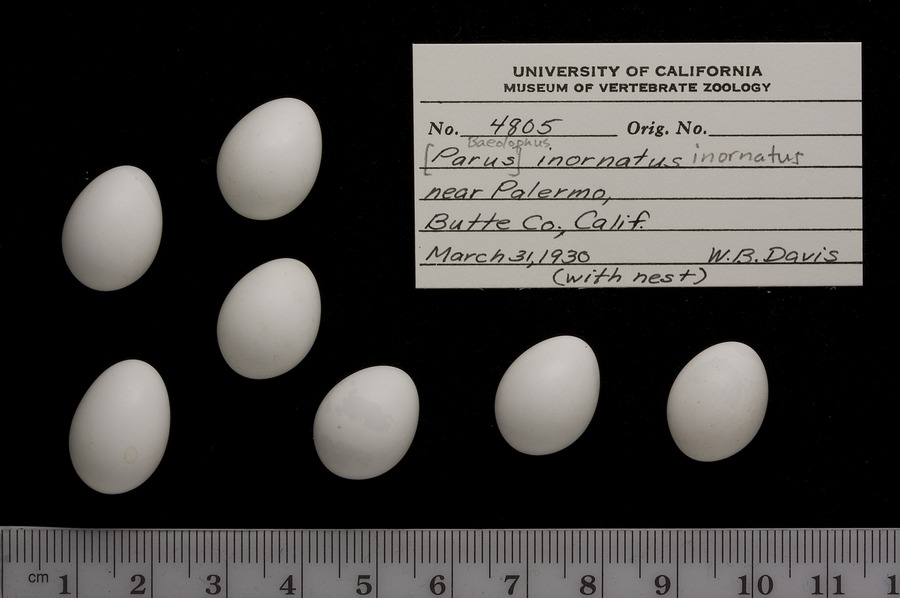 UNIVERSITY OF CALIFORNIA
MUSEUM OF VERTEBRATE ZOOLOGY
No. 4805 Orig. No.
Baeolophus
[Parus] inornatus inornatus
near Palermo,
Butte Co., Calif.
March 31, 1930 W.B. Davis
(with nest)
cm 1 2 3 4 5 6 7 8 9 10 11 1